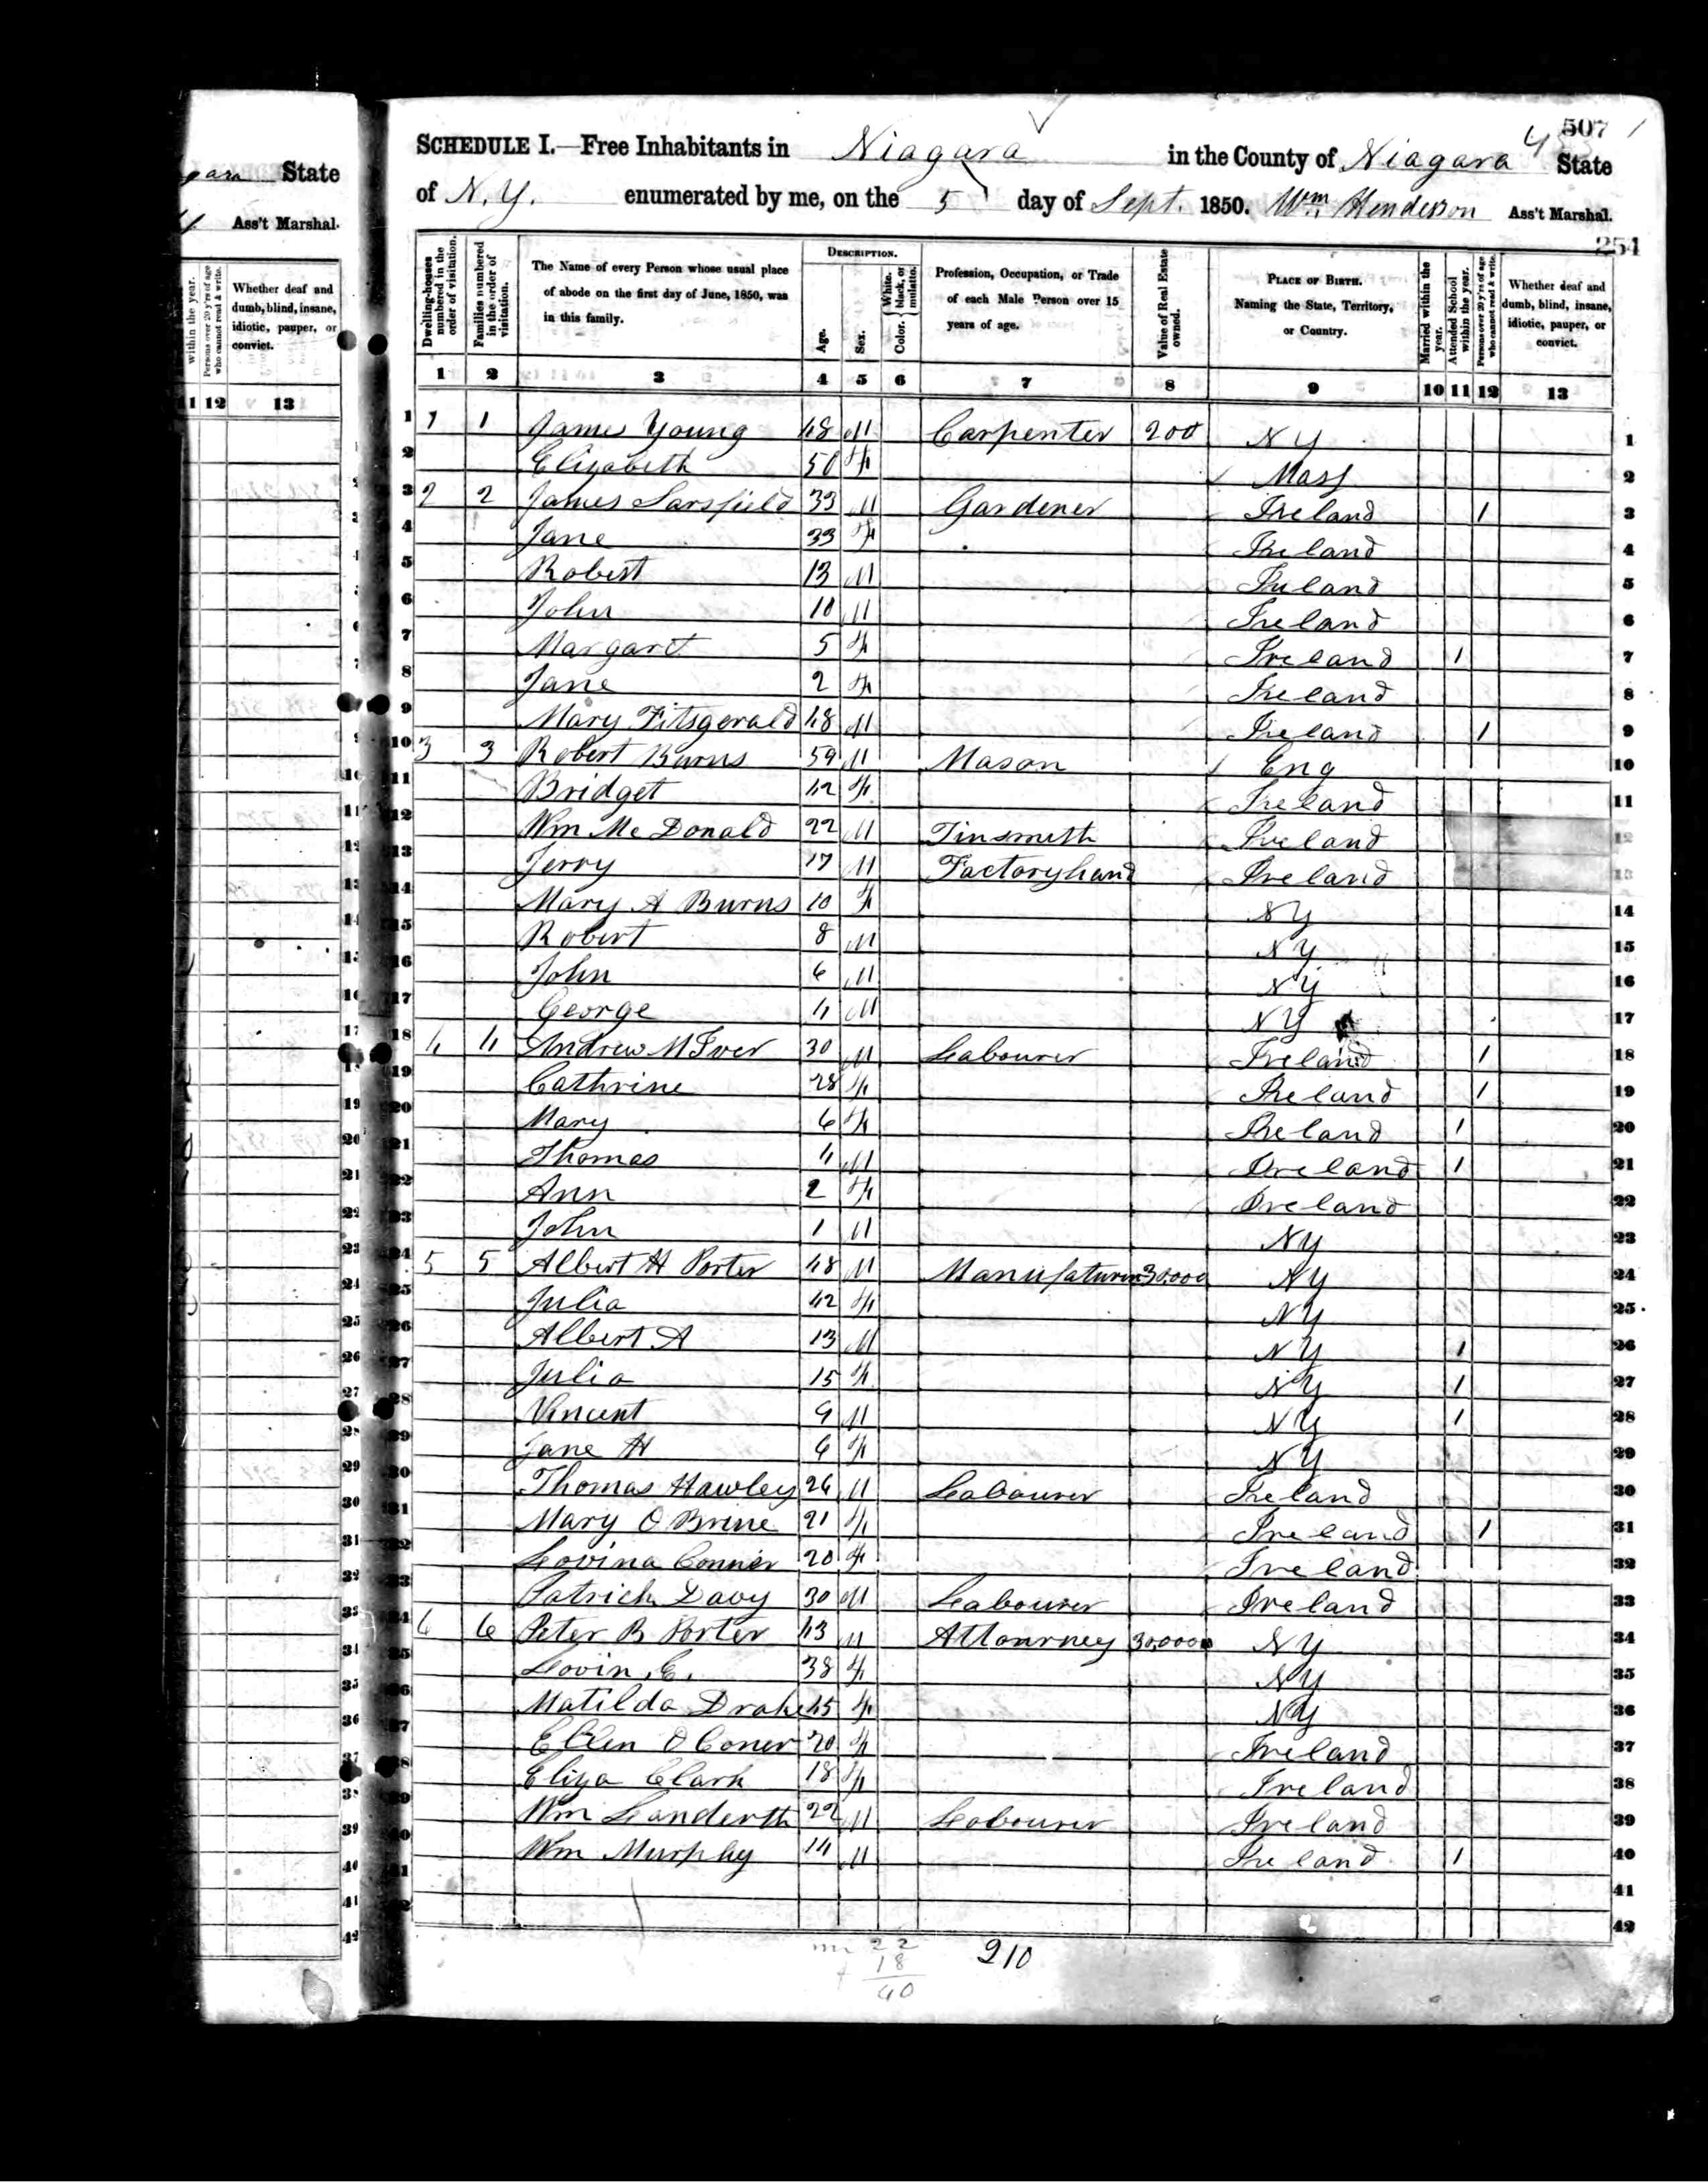 507
SCHEDULE I.—Free Inhabitants in Niagara in the County of Niagara State
of N.Y. enumerated by me, on the 5 day of Sept. 1850. Wm Henderson Ass't Marshal.
254
State
Ass't Marshal.
within the year.
Persons over 20 y'rs of age who cannot read & write.
Whether deaf and dumb, blind, insane, idiotic, pauper, or convict.
1 12 13
Dwelling-houses numbered in the order of visitation.
Families numbered in the order of visitation.
The Name of every Person whose usual place of abode on the first day of June, 1850, was in this family.
DESCRIPTION.
Age.
Sex.
Color. White, black, or mulatto.
Profession, Occupation, or Trade of each Male Person over 15 years of age.
Value of Real Estate owned.
PLACE OF BIRTH. Naming the State, Territory, or Country.
Married within the year.
Attended School within the year.
Persons over 20 y'rs of age who cannot read & write.
Whether deaf and dumb, blind, insane, idiotic, pauper, or convict.
1 2 3 4 5 6 7 8 9 10 11 12 13
1 1 1 James Young 48 M Carpenter 200 NY 1
2 Elizabeth 50 F Mass 2
3 2 2 James Sarsfield 33 M Gardener Ireland 1 3
4 Jane 33 F Ireland 4
5 Robert 13 M Ireland 5
6 John 10 M Ireland 6
7 Margaret 5 F Ireland 1 7
8 Jane 2 F Ireland 8
9 Mary Fitsgerald 48 M Ireland 1 9
10 3 3 Robert Burns 59 M Mason Eng 10
11 Bridget 42 F Ireland 11
12 Wm McDonald 22 M Tinsmith Ireland 12
13 Jerry 17 M Factoryhand Ireland 13
14 Mary A Burns 10 F NY 14
15 Robert 8 M NY 15
16 John 6 M NY 16
17 George 4 M NY 17
18 4 4 Andrew McIver 30 M Labourer Ireland 1 18
19 Cathrine 28 F Ireland 1 19
20 Mary 6 F Ireland 1 20
21 Thomas 4 M Ireland 1 21
22 Ann 2 F Ireland 22
23 John 1 M NY 23
24 5 5 Albert H Porter 48 M Manufaturer 30,000 NY 24
25 Julia 42 F NY 25
26 Albert A 13 M NY 1 26
27 Julia 15 F NY 1 27
28 Vincent 9 M NY 1 28
29 Jane H 6 F NY 29
30 Thomas Hawley 26 M Labourer Ireland 30
31 Mary O Brine 21 F Ireland 1 31
32 Lovina Conner 20 F Ireland 32
33 Patrick Davy 30 M Labourer Ireland 33
34 6 6 Peter B Porter 43 M Attourney 30,000 NY 34
35 Lovin, E. 38 F NY 35
36 Matilda Drake 45 F NY 36
37 Ellen O Coner 20 F Ireland 37
38 Eliza Clark 18 F Ireland 38
39 Wm Landerth 22 M Labourer Ireland 39
40 Wm Murphy 14 M Ireland 1 40
41 41
42 42
m 22
f 18
40
210